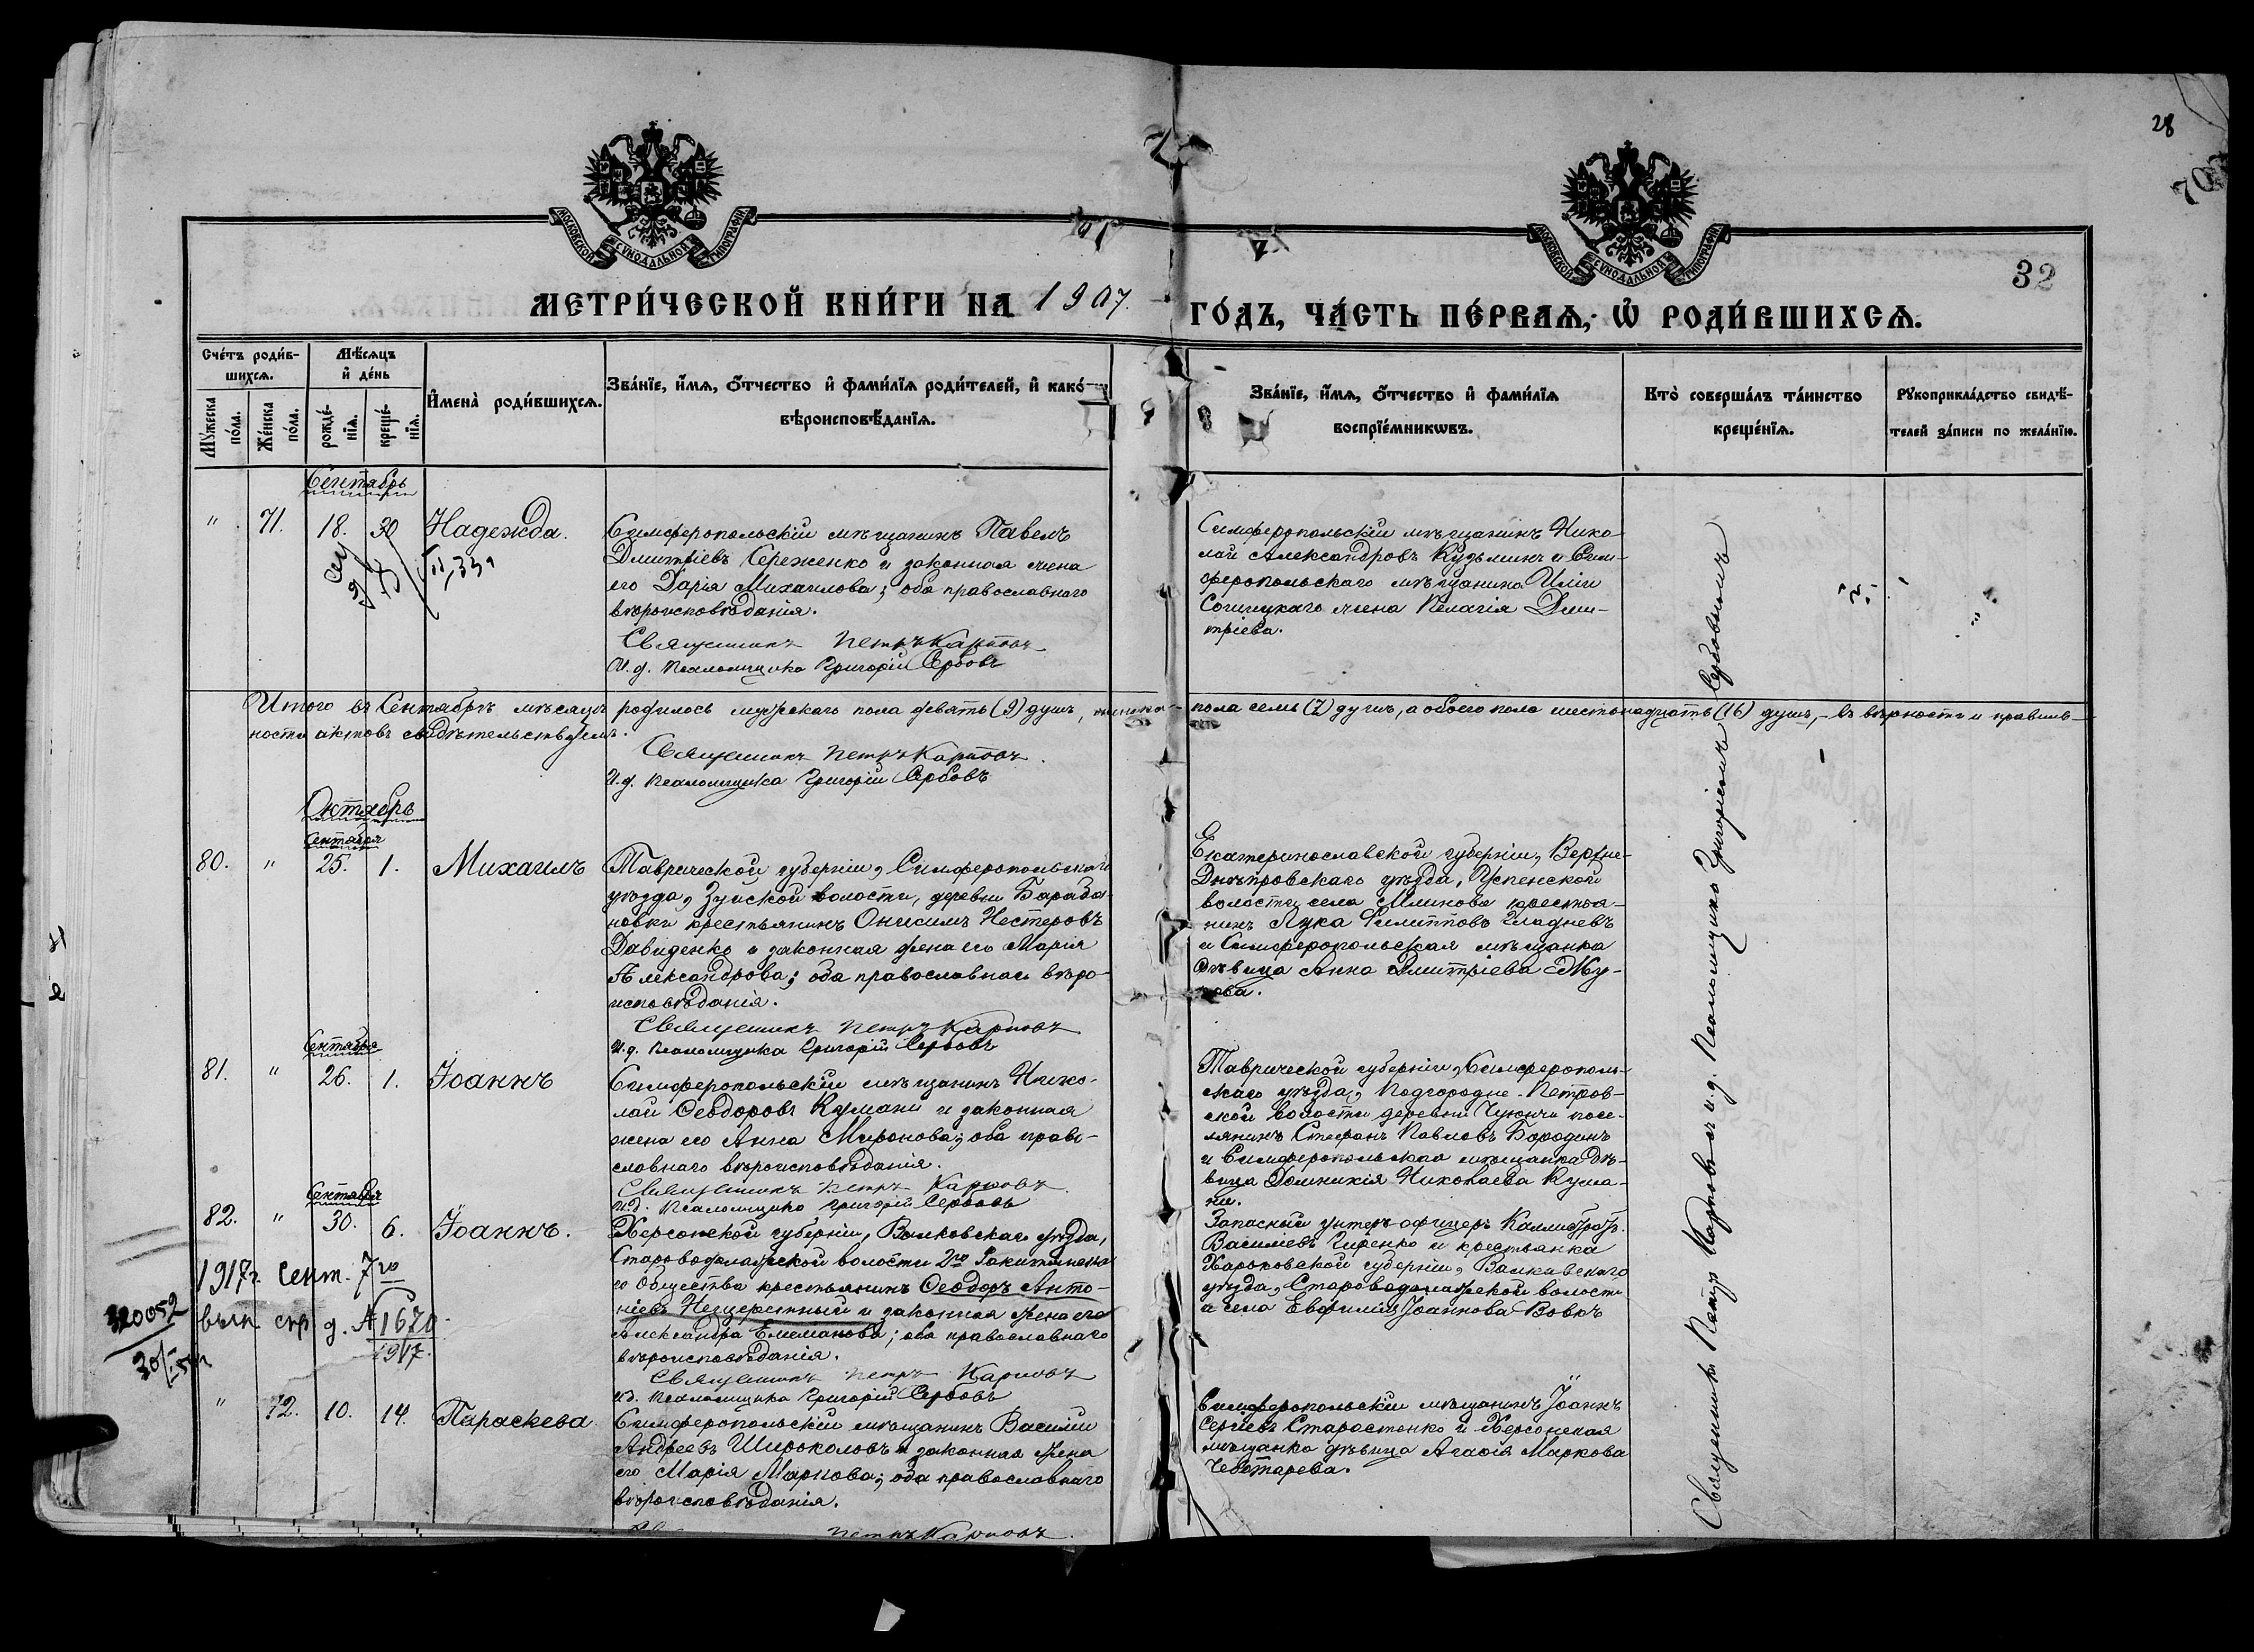 28
32
МОСКОВСКОЙ СѴНОДАЛЬНОЙ ТИПОГРАФІИ
МОСКОВСКОЙ СѴНОДАЛЬНОЙ ТИПОГРАФІИ
МЕТРИ́ЧЕСКОЙ КНИ́ГИ НА 1907.
ГО́ДЪ, ЧА́СТЬ ПЕ́РВАѦ, Ѡ҆ РОДИ́ВШИХСѦ.
Сче́тъ роди́в-
шихсѧ.
Мꙋжеска
по́ла.
Же́нска
по́ла.
Мѣ́сѧцъ
и҆ де́нь
рожде́-
нїѧ.
креще́-
нїѧ.
И҆мена̀ роди́вшихсѧ.
Зва́нїе, и҆́мѧ, ѻ҆́тчество и҆ фами́лїѧ роди́телей, и҆ како́-
вѣроисповѣ́данїѧ.
Зва́нїе, и҆́мѧ, ѻ҆́тчество и҆ фами́лїѧ
воспрїе́мникѡвъ.
Кто̀ соверша́лъ та́инство
креще́нїѧ.
Рꙋкоприкла́дство свидѣ́-
телей за́писи по жела́нїю.
Сентябрь
" 71. 18. 30 Надежда.
Симферопольскій мѣщанинъ Павелъ
Дмитріевъ Сереженко и законная жена
его Дарія Михаилова; оба православнаго
вѣроисповѣданія.
Священникъ Петръ Карповъ
И.д. Псаломщика Григорій Сербовъ
Симферопольскій мѣщанинъ Нико-
лай Александровъ Кузьминъ и Сим-
феропольскаго мѣщанина Иліи
жена Пелагія Дми-
тріева.
Итого въ Сентябрѣ мѣсяцѣ родилось мужскаго пола девять (9) душъ, женска- пола семь (7) душъ, а обоего пола шестьнадцать (16) душъ, – въ вѣрности и правиль-
ности актовъ свидѣтельствуемъ.
Священникъ Петръ Карповъ.
И.д. Псаломщика Григорій Сербовъ
Октябрь
Сентября
80. " 25. 1. Михаилъ
Таврической губерніи, Симферопольскаго
уѣзда, Зуйской волости, деревни Бараба-
новки крестьянинъ Онисимъ Нестеровъ
Давиденко и законная жена его Марія
Александрова; оба православнаго вѣро-
исповѣданія.
Священникъ Петръ Карповъ
И.д. Псаломщика Григорій Сербовъ
Екатеринославской губерніи, Верхне-
Днѣпровскаго уѣзда, Успенской
волости села Млинова крестья-
нинъ Лука Филипповъ Гладневъ
и Симферопольская мѣщанка
дѣвица Анна Дмитріева
Сентября
81. " 26. 1. Іоаннъ
Симферопольскій мѣщанинъ Нико-
лай Ѳеодоровъ Кумани и законная
жена его Анна Миронова; оба право-
славнаго вѣроисповѣданія.
Священникъ Петръ Карповъ.
И.д. Псаломщика Григорій Сербовъ
Таврической губерніи, Симферополь-
скаго уѣзда, Подгородне-Петров-
ской волости деревни Чуюнчи посе-
лянинъ Стефанъ Павловъ Бородинъ
и Симферопольская мѣщанка дѣ-
вица Домникія Николаева Кума-
ни.
Сентября
82. " 30. 6. Іоаннъ.
Херсонской губерніи, Валковскаго уѣзда,
Староводолажской волости 2го Ракитянска-
го Общества крестьянинъ Ѳеодоръ Анто-
ніевъ Нещеретный и законная жена его
Александра Емеліанова; оба православнаго
вѣроисповѣданія.
Священникъ Петръ Карповъ
И.д. Псаломщика Григорій Сербовъ
Запасный унтеръ-офицеръ Каллистратъ
Василіевъ Гиренко и крестьянка
Харьковской губерніи, Валковскаго
уѣзда, Староводолажской волости
и села Евфимія Іоаннова Вовкъ
1917г. сент. 7го
вып. г. д. № 1670
1917.
320052
" 72. 10. 14. Параскева
Симферопольскій мѣщанинъ Василій
Андреевъ Широколовъ и законная жена
его Марія Маркова; оба православнаго
вѣроисповѣданія.
Петръ Карповъ.
Симферопольскій мѣщанинъ Іоаннъ
Сергіевъ Старостенко и Херсонская
мѣщанка дѣвица Агафія Маркова
Чеботарева.
Священникъ Петръ Карповъ съ и.д. Псаломщика Григоріемъ Сербовымъ